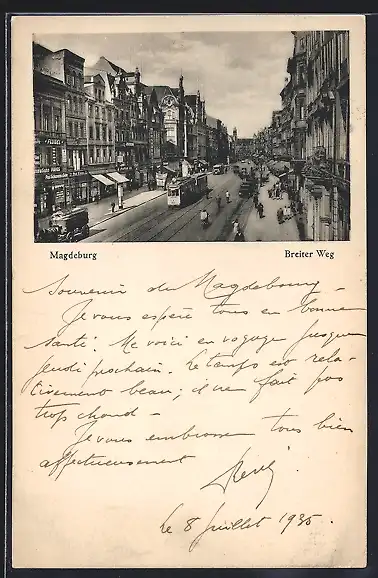 FLÜGEL
Magdeburg
Breiter Weg
Souvenir de Magdebourg –
Je vous espère tous en bonne
santé. Me voici en voyage jusque
jeudi prochain. Le temps est rela-
tivement beau; il ne fait pas
trop chaud –
Je vous embrasse tous bien
affectueusement
René
le 8 Juillet 1935.